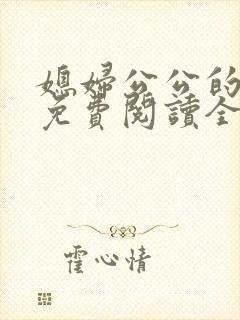 媳婦公公的
免費閱讀全
霍心情